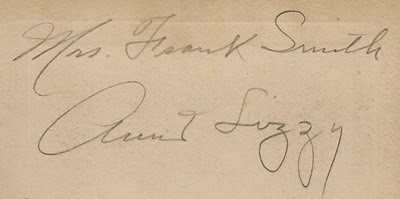 Mrs. Frank Smith
Aunt Lizzy